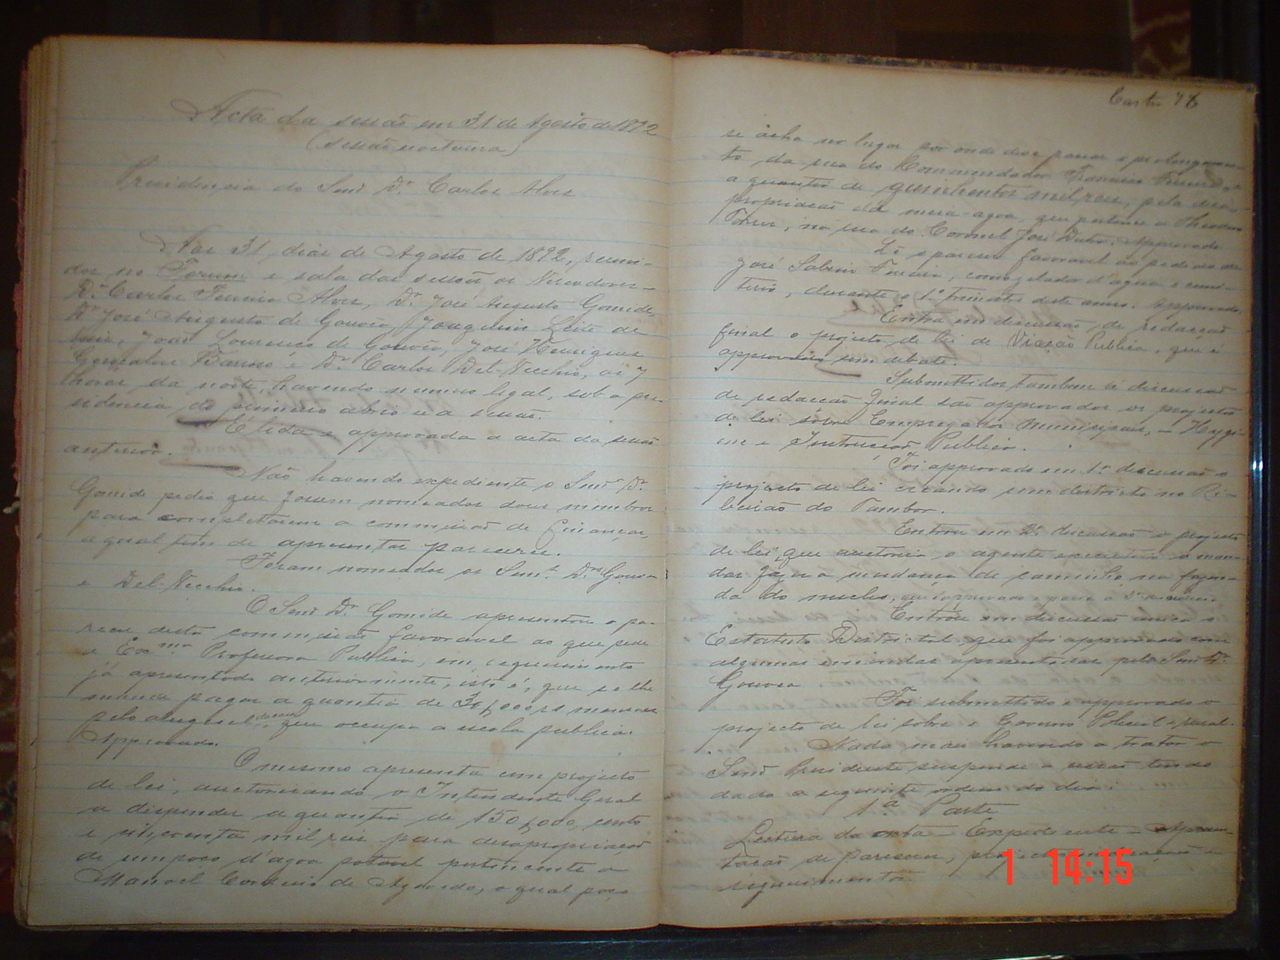 Acta da sessão em 31 de Agosto de 1892
(sessão nocturna)
Presidencia do Senr. Dr. Carlos Alves
Aos 31 dias de Agosto de 1892, reuni-
dos no Forum e sala das sessões, os Vereadores
Dr. Carlos Ferreira Alves, Dr. José Augusto Gomide,
Dr. José Augusto de Gouvêa, Joaquim Leite de
João Lourenço de Gouvêa, José Henrique
Gonçalves Barroso e Dr. Carlos Del-Vecchio, as 7
horas da noite, havendo numero legal, sob a pre-
sidencia do primeiro abrio-se a sessão.
É lida e approvada a acta da sessão
anterior.
Não havendo expediente o Senr. Dr.
Gomide pedio que fossem nomeados dous membros
para completarem a commissão de Finanças,
a qual tem de apresentar parecer.
Foram nomeados os Senrs. Drs. Gouvêa
e Del-Vecchio.
O Senr. Dr. Gomide apresentou o pa-
recer desta commissão favoravel ao que pede
a Exma. Professora Publica, em requerimento
já apresentado anteriormente, isto é, que se lhe
mande pagar a quantia de 30,000rs mensaes
pelo aluguel que occupa a escola publica.
Approvado.
O mesmo apresenta um projecto
de lei, auctorisando o Intendente Geral
a dispender a quantia de 150,000, cento
e cincoenta mil reis para desapropriação
de um poço d'agoa potavel pertencente a
Manoel de Azevedo, o qual poço
se acha no lugar por onde deve passar o prolongamen-
to da rua do Commendador
a quantia de quinhentos mil reis, pela desa-
propriação da meia-agoa, que pertence a Theodoro
na rua do Coronel José Dutra. Approvado
Lê o parecer favoravel ao pedido de
José Sabino zelador d'agua e cemi-
terio, durante o 1º trimestre deste anno. Approvado.
Entra em discussão, de redacção
final o projecto de lei de Viação Publica, que é
approvado sem debate.
Submettidos tambem á discussão
de redacção final são approvados os projectos
de lei sobre Empregados Municipaes, - Hygi-
ene e Instrucção Publica.
Foi approvado em 1ª discussão o
projecto de lei creando um districto no Ri-
beirão do Tambor.
Entrou em 2ª discussão o projecto
de lei, que auctorisa o agente executivo a man-
dar fazer a mudança de caminho na fazen-
da do que é approvado e passa á 3ª discussão.
Entrou em discussão unica o
Estatuto Districtal que foi approvado com
algumas emendas apresentadas pelo Senr. Dr.
Gouvea.
Foi submettido e approvado o
projecto de lei sobre o Governo
Nada mais havendo a tratar o
Senr. Presidente suspende a sessão tendo
dado a seguinte ordem do dia
1ª Parte
Leitura da acta - Expediente - Apresen-
tação de pareceres, projectos, indicações e
requerimentos.
1 14:15